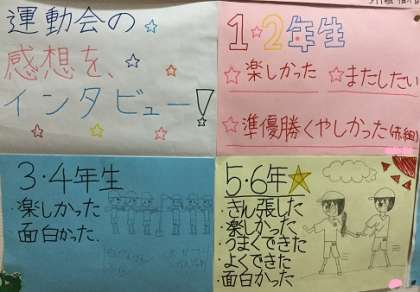 運動会の
感想を、
インタビュー!
1・2年生
☆楽しかった ☆またしたい
☆準優勝くやしかった(赤組)
3・4年生
・楽しかった
・面白かった
5・6年
・きん張した
・楽しかった
・うまくできた
・よくできた
・面白かった